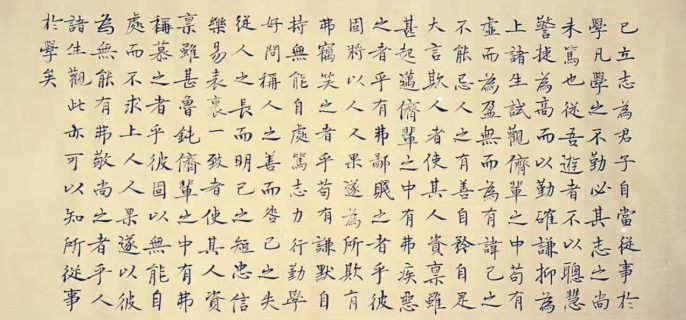 已立志為君子自當從事於
學凡學之不勤必其志之尚
未篤也從吾遊者不以聰慧
警捷為高而以勤確謙抑為
上諸生試觀儕輩之中苟有
虛而為盈無而為有諱己之
不能忌人之有善自矜自足
大言欺人者使其人資稟雖
甚起邁儕輩之中有弗疾惡
之者乎有弗鄙賤之者乎彼
固將以人人果遂為所欺有
弗竊笑之者乎苟有謙默自
持無能自處篤志力行勤學
好問稱人之善而咎己之失
從人之長而明己之短忠信
樂易表裏一致者使其人資
稟雖甚魯鈍儕輩之中有弗
稱慕之者乎彼固以無能自
處而不求上人人果遂以彼
為無能有弗敬尚之者乎人
諸生觀此亦可以知所從事
於學矣